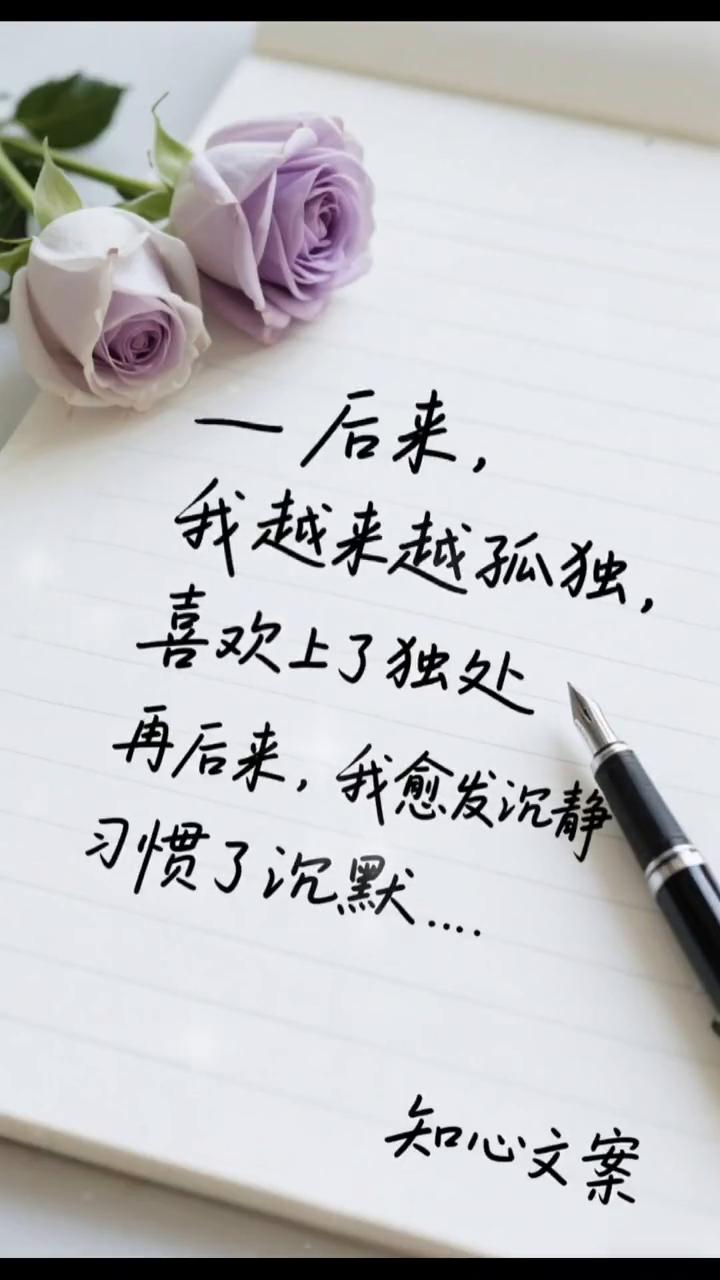 一后来，
我越来越孤独，
喜欢上了独处
再后来，我愈发沉静
习惯了沉默....
知心文案